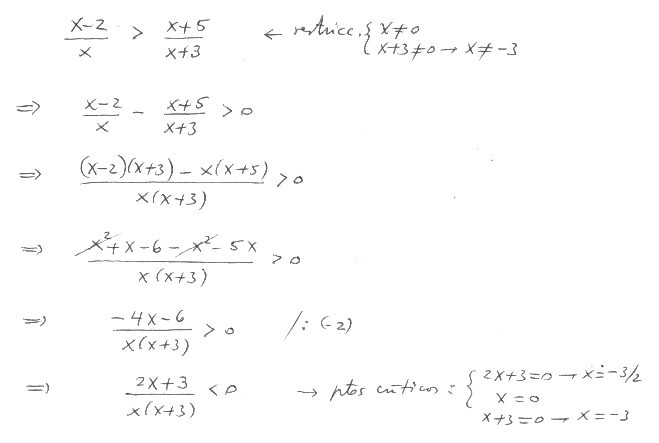 (x-2)/x > (x+5)/(x+3) ← restricc. { x≠0
x+3≠0 → x≠-3
⇒ (x-2)/x - (x+5)/(x+3) > 0
⇒ ((x-2)(x+3) - x(x+5))/(x(x+3)) > 0
⇒ (x²+x-6-x²-5x)/(x(x+3)) > 0
⇒ (-4x-6)/(x(x+3)) > 0 /: (-2)
⇒ (2x+3)/(x(x+3)) < 0 → ptos críticos : { 2x+3=0 → x=-3/2
x=0
x+3=0 → x=-3